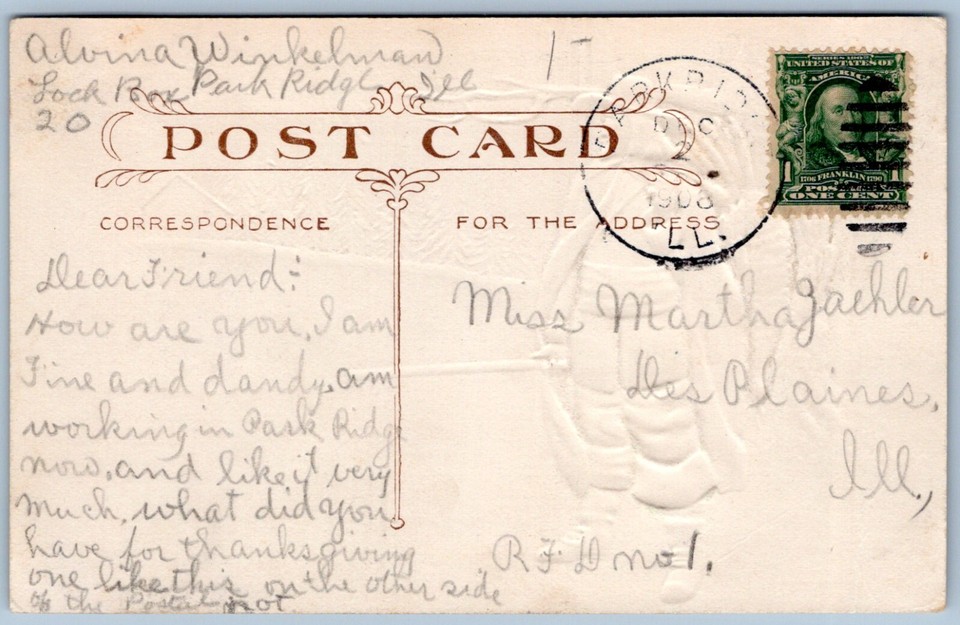 Alvina Winkelman
Lock Box Park Ridge Ill
20
1-
POST CARD
PARK RIDGE
DEC
2
1908
ILL.
SERIES 1902
UNITED STATES OF
AMERICA
1706 FRANKLIN 1790
1 POSTAGE 1
ONE CENT
CORRESPONDENCE
FOR THE ADDRESS
Dear Friend:-
How are you, I am
Fine and dandy, am
working in Park Ridge
now, and like it very
much, what did you
have for thanksgiving
one like this on the other side
of the Postal not
Miss Martha Jaehler
Des Plaines,
Ill.,
R F D no 1.